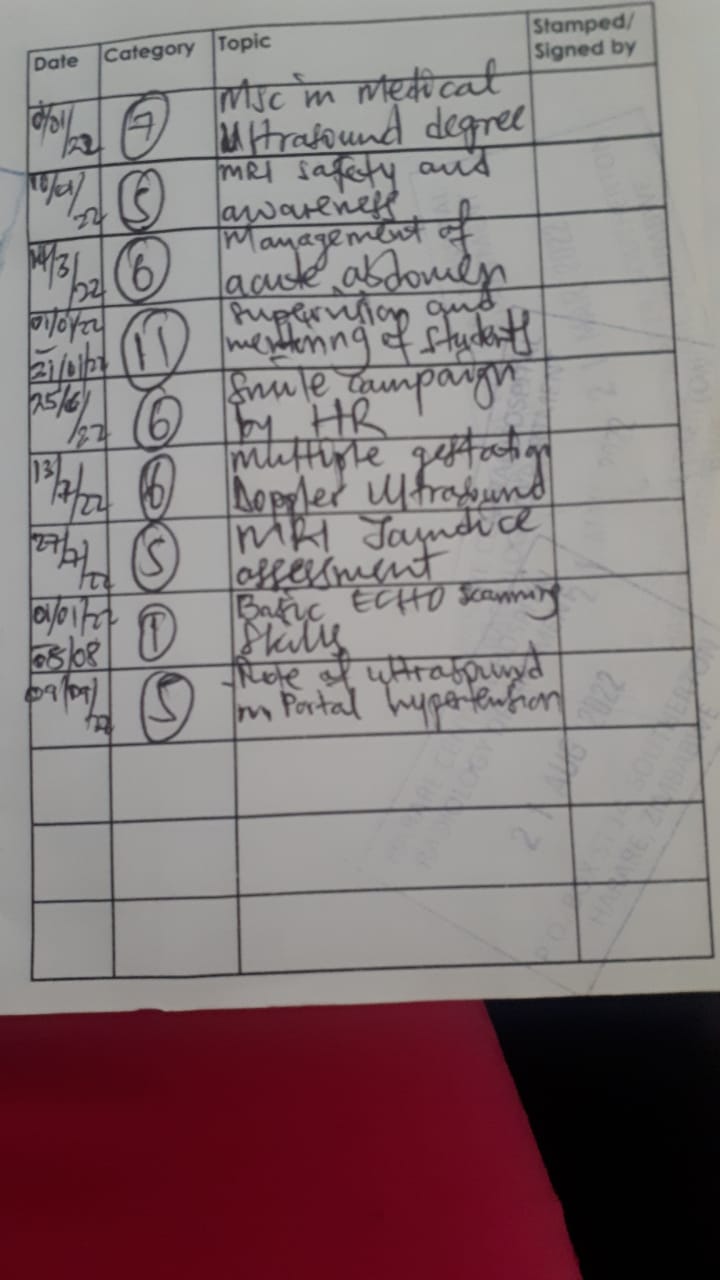 Date Category Topic Stamped/
Signed by
01/01/22 7 Msc in Medical
Ultrasound degree
10/01/22 5 MRI safety and
awareness
14/3/22 6 Management of
acute abdomen
01/01/22 – 21/01/22 11 Supervision and
mentoring of students
25/6/22 6 Smile campaign
by HR
13/7/22 6 Multiple gestation
Doppler Ultrasound
27/7/22 5 MRI Jaundice
assessment
01/01/22 08/08 1 Basic ECHO scanning
Skills
09/09/22 5 - Role of ultrasound
in Portal hypertension
21 AUG 2022
HARARE ZIMBABWE